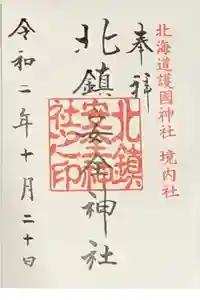 北海道護國神社 境内社
奉拝
北鎮安全神社
北鎮
安全神
社之印
令和二年十月二十日